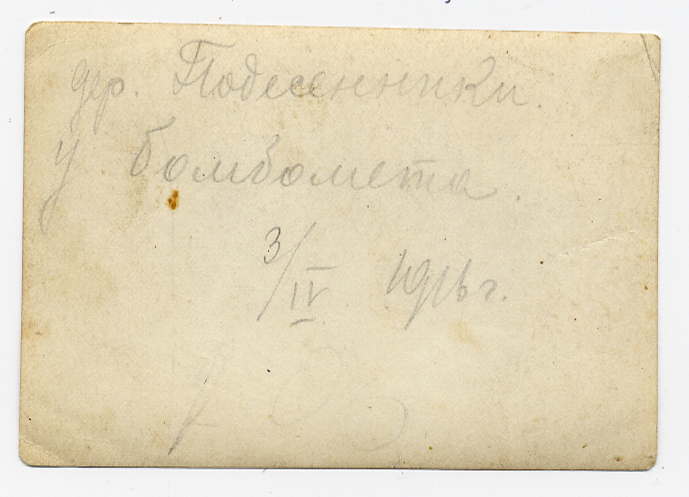 дер. Подесенники.
у бомбомета.
3/IV 1916 г.